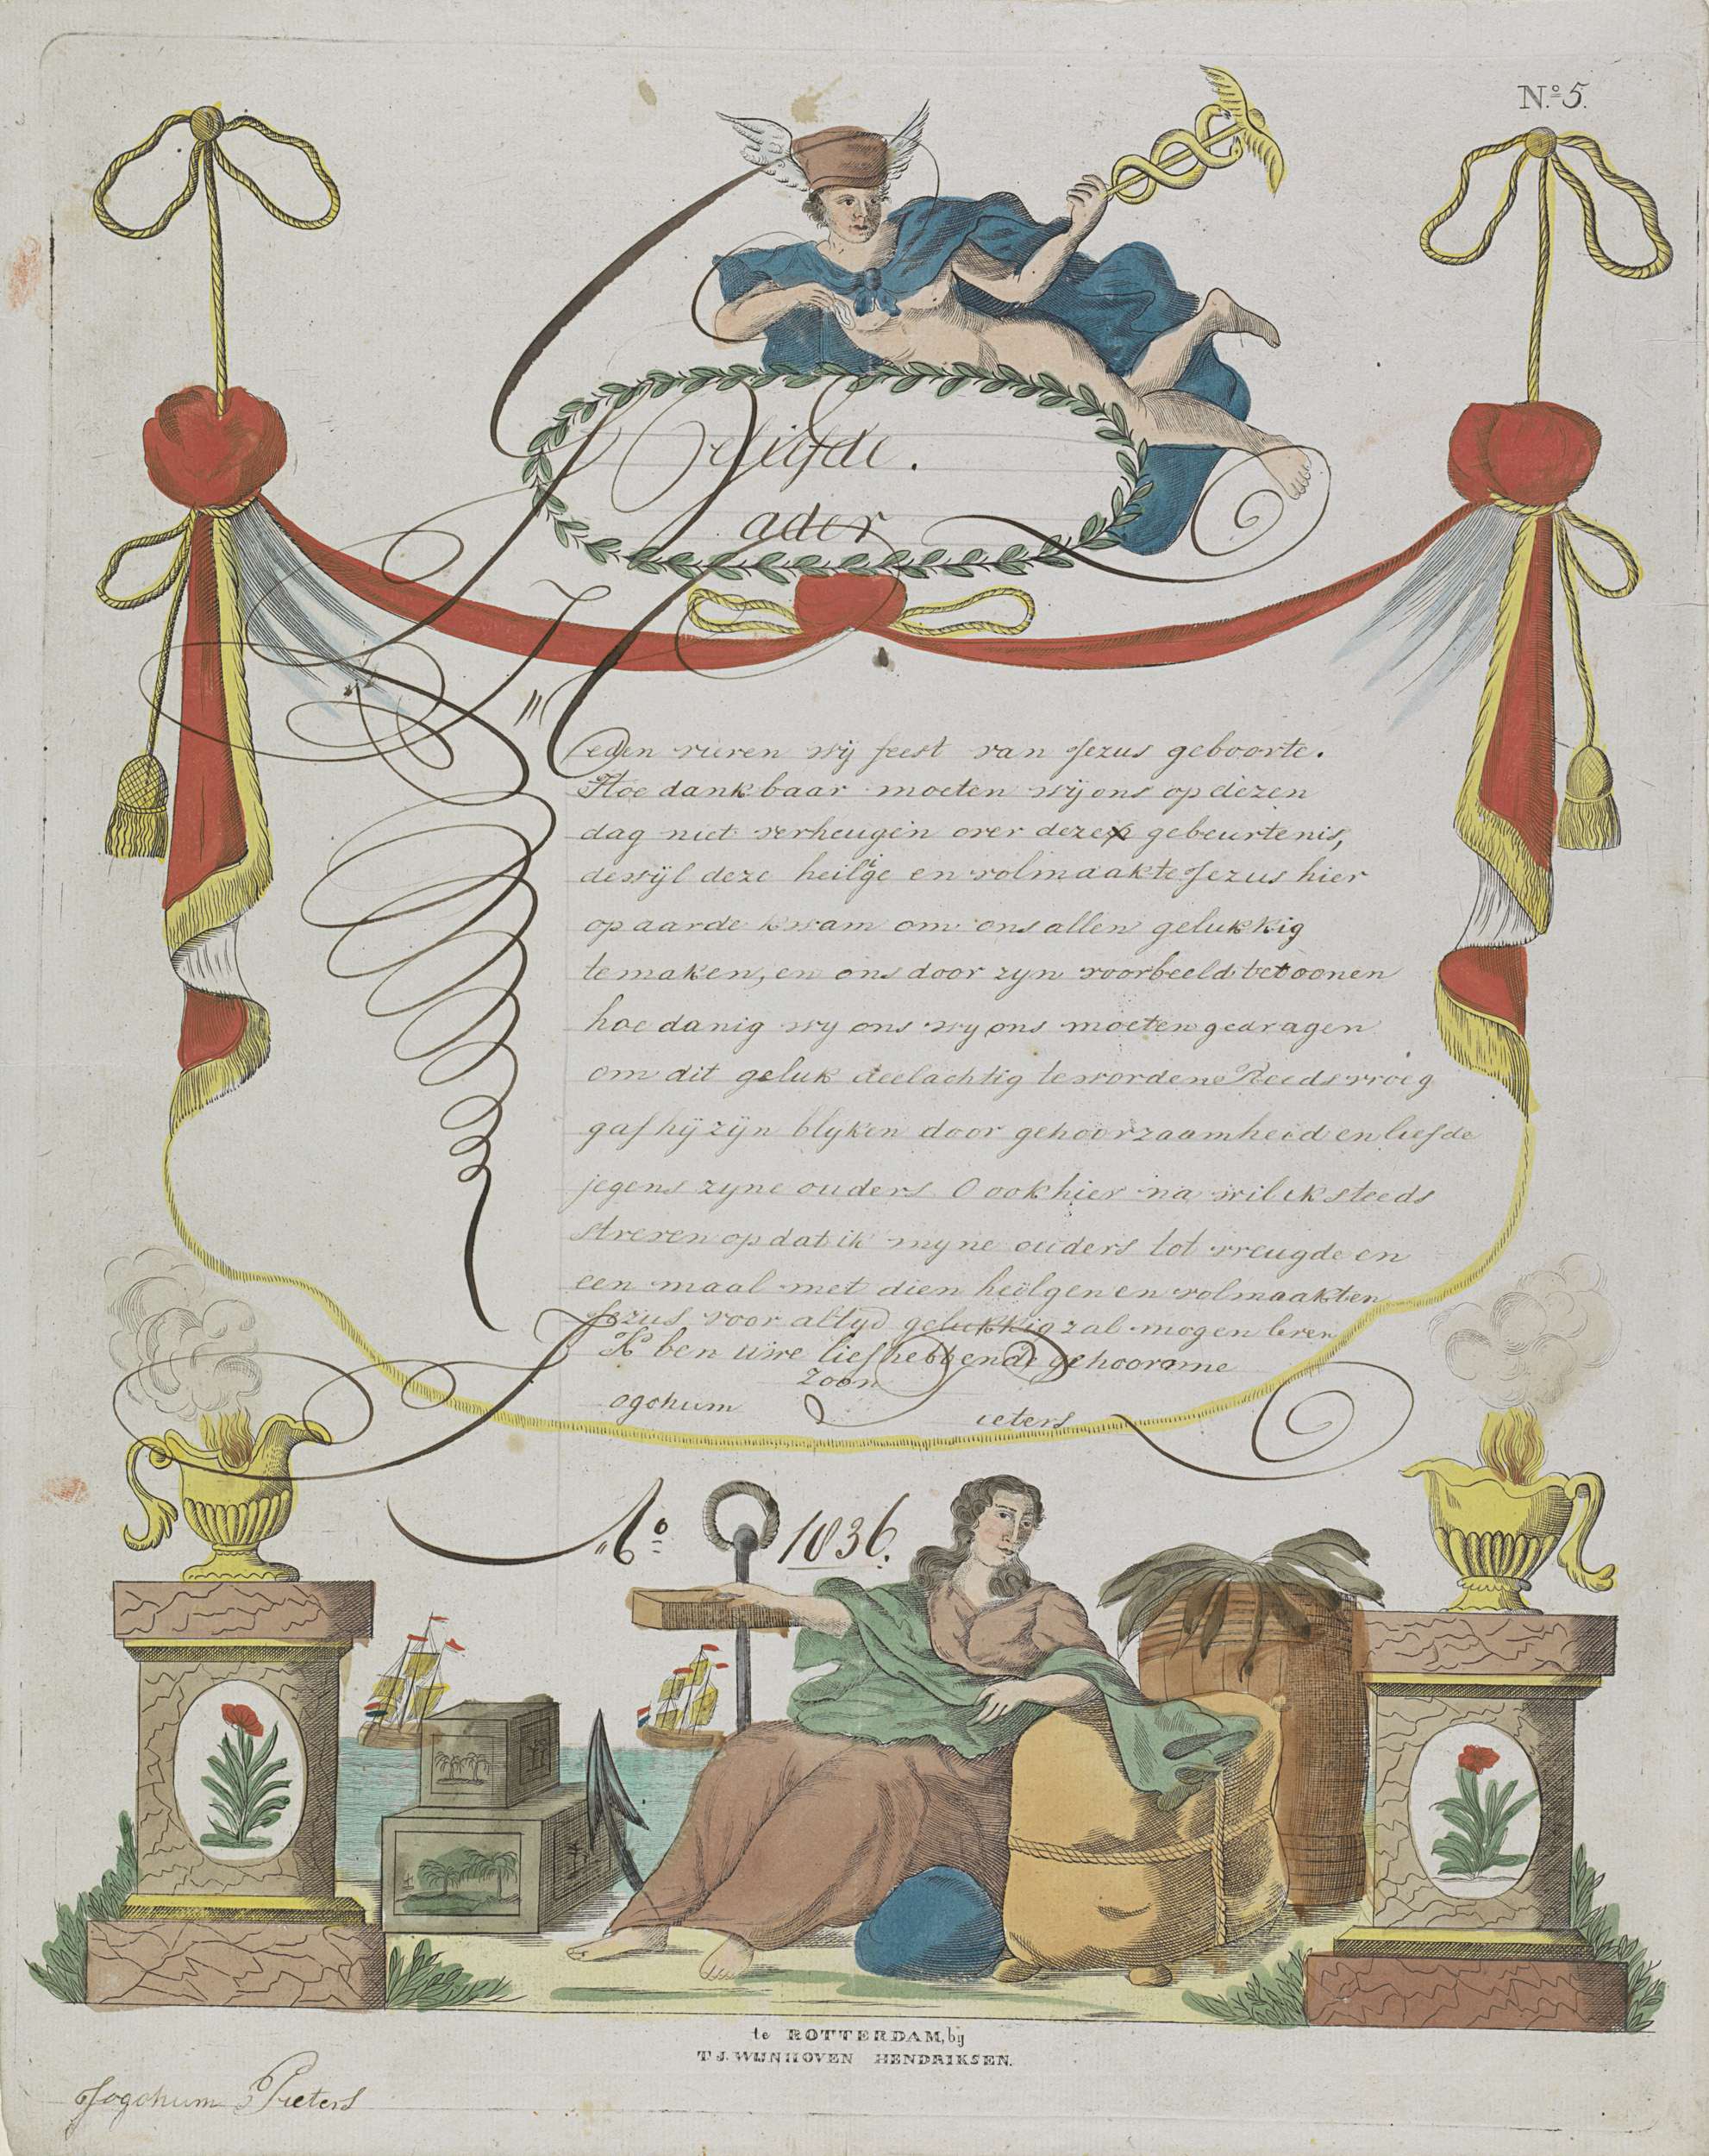 N.º 5.
Geliefde.
Vader
Heden vieren wij feest van Jezus geboorte.
Hoe dankbaar moeten wij ons op dezen
dag niet verheugen over deze gebeurtenis,
dewijl deze heilige en volmaakte Jezus hier
op aarde kwam om ons allen gelukkig
te maken, en ons door zyn voorbeeld betoonen
hoe danig wy ons wy ons moeten gedragen
om dit geluk deelachtig te wordene Reeds vroeg
gaf hij zijn blyken door gehoorzaamheid en liefde
jegens zyne ouders O ook hier na wil ik steeds
streven op dat ik myne ouders tot vreugde en
een maal met dien heilgen en volmaakten
Jezus voor altyd gelukkig zal mogen leven
Ik ben uwe liefhebbende gehoorame
Zoon
Jogchum Pieters
Aº 1836.
te ROTTERDAM, bij
T. J. WIJNHOVEN HENDRIKSEN.
Jogchum Pieters